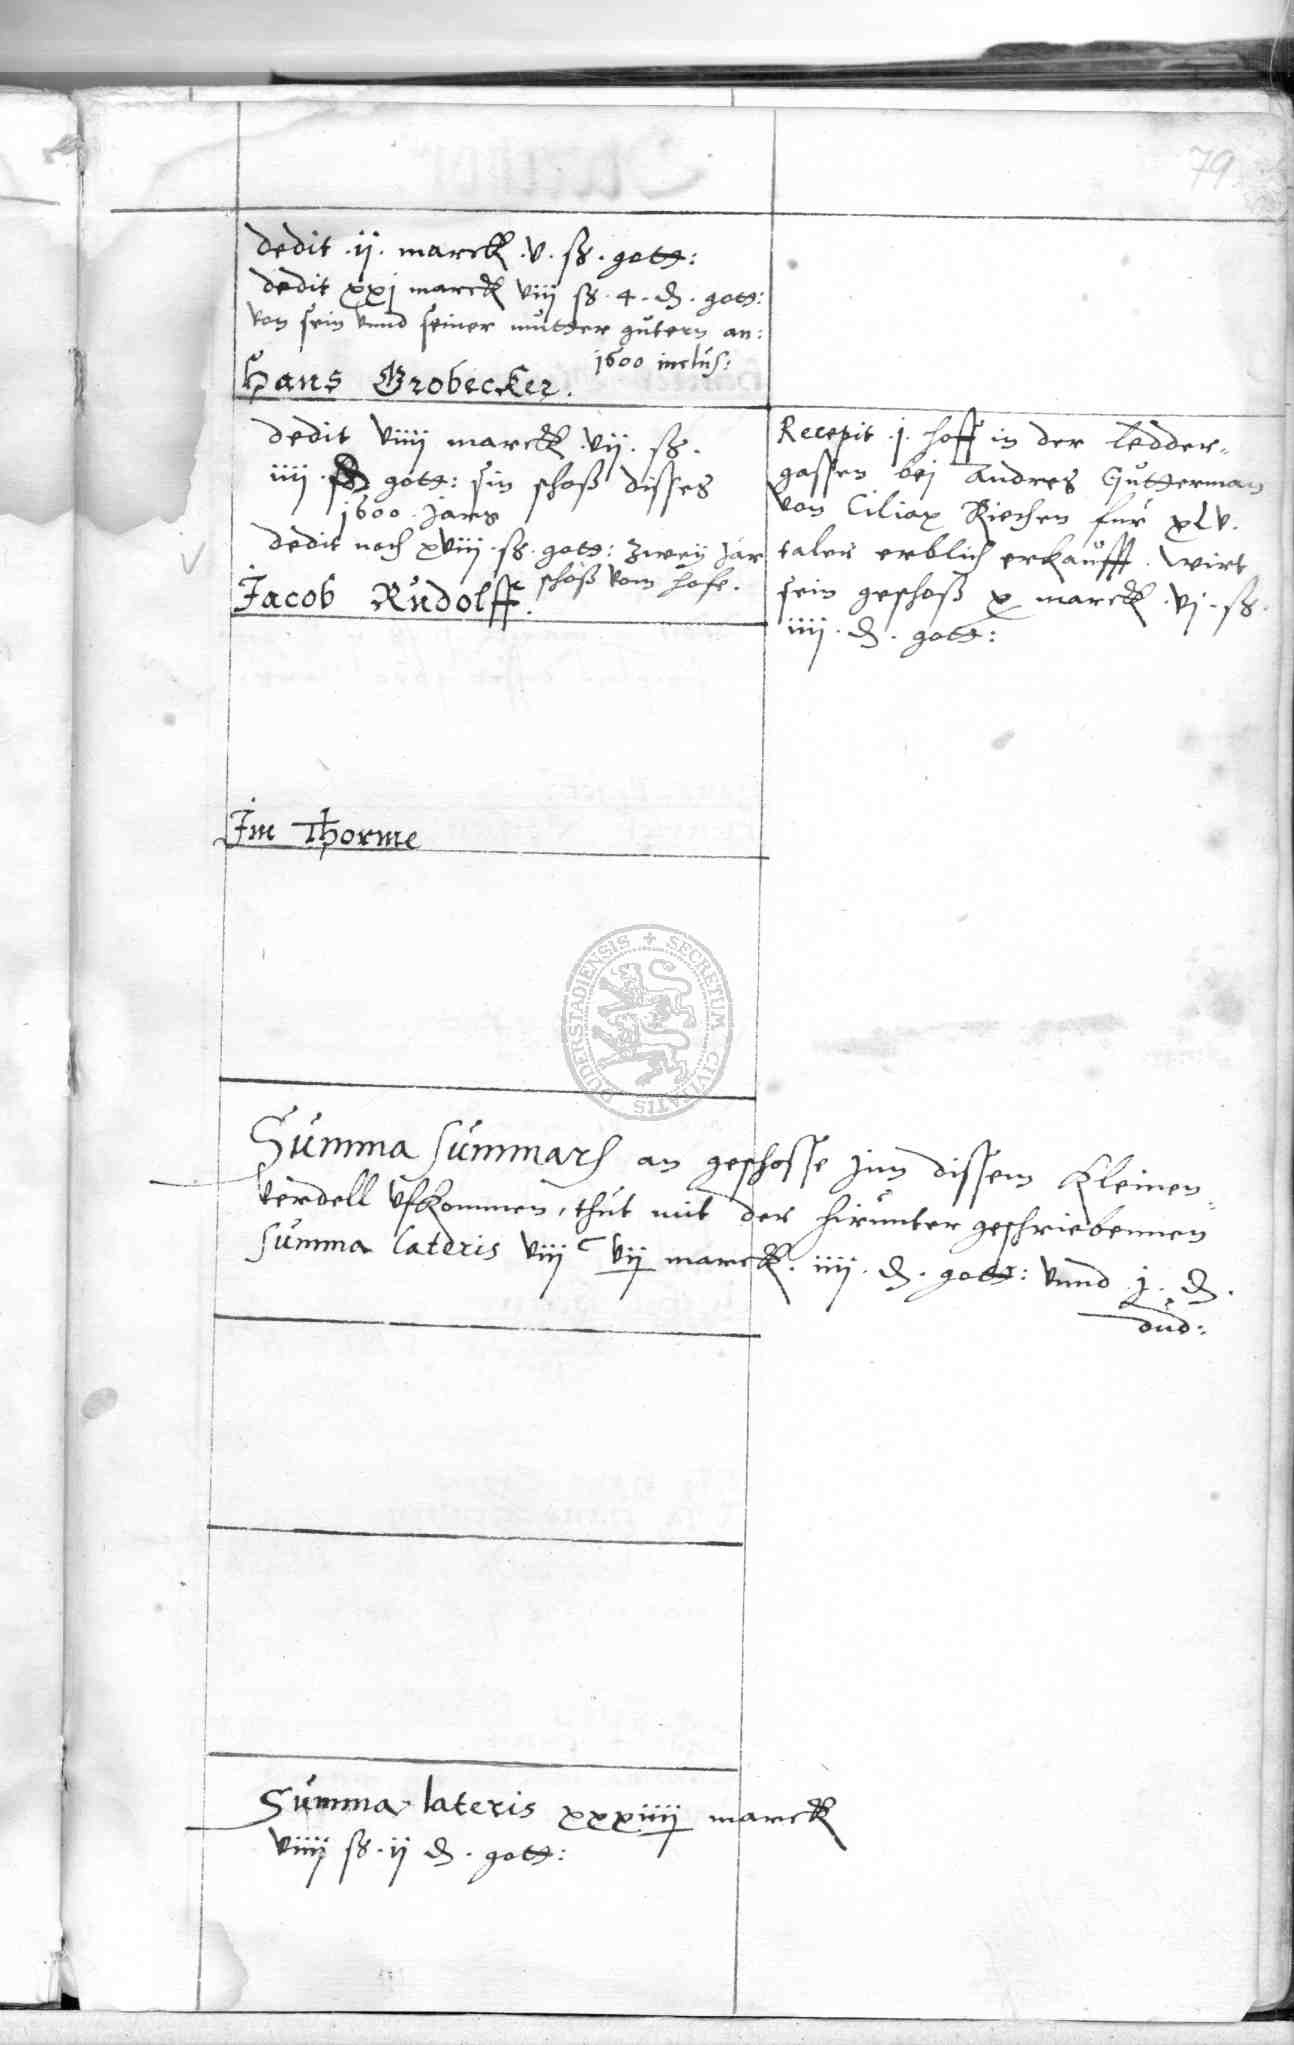 79
dedit .ij. marck .v. ß. gott:
dedit xxj marck viij ß. 4. d. gott:
von sein vnnd seiner mutter gutern an:
1600 inclus:
Hans Grobecker.
dedit viiij marck .vij. ß.
iiij gott: sin schoß disses
1600. Jars
dedit noch xviij. ß. gott: zweij Jar
schoß vom hofe.
Jacob Rudolff.
Recepit .j. hoff in der Ledder-
gassen bej Andres Gutterman
von Ciliax Riechen fur xLv.
taler erblich erkaufft. wirt
sein geschoß x marck .vj. ß.
iiij. d. gott:
Im Thorme
DUDERSTADIENSIS + SECRETUM CIVITATIS
Summa summarum an geschosse jnn dissem Kleinen-
verdell vfkommen, thut mit der hirunter geschriebennen
summa lateris viij c vij marck. iiij. d. gott: vnnd .j. d.
dud:
Summa lateris xxxiiij marck
viiij ß. ij d. gott: